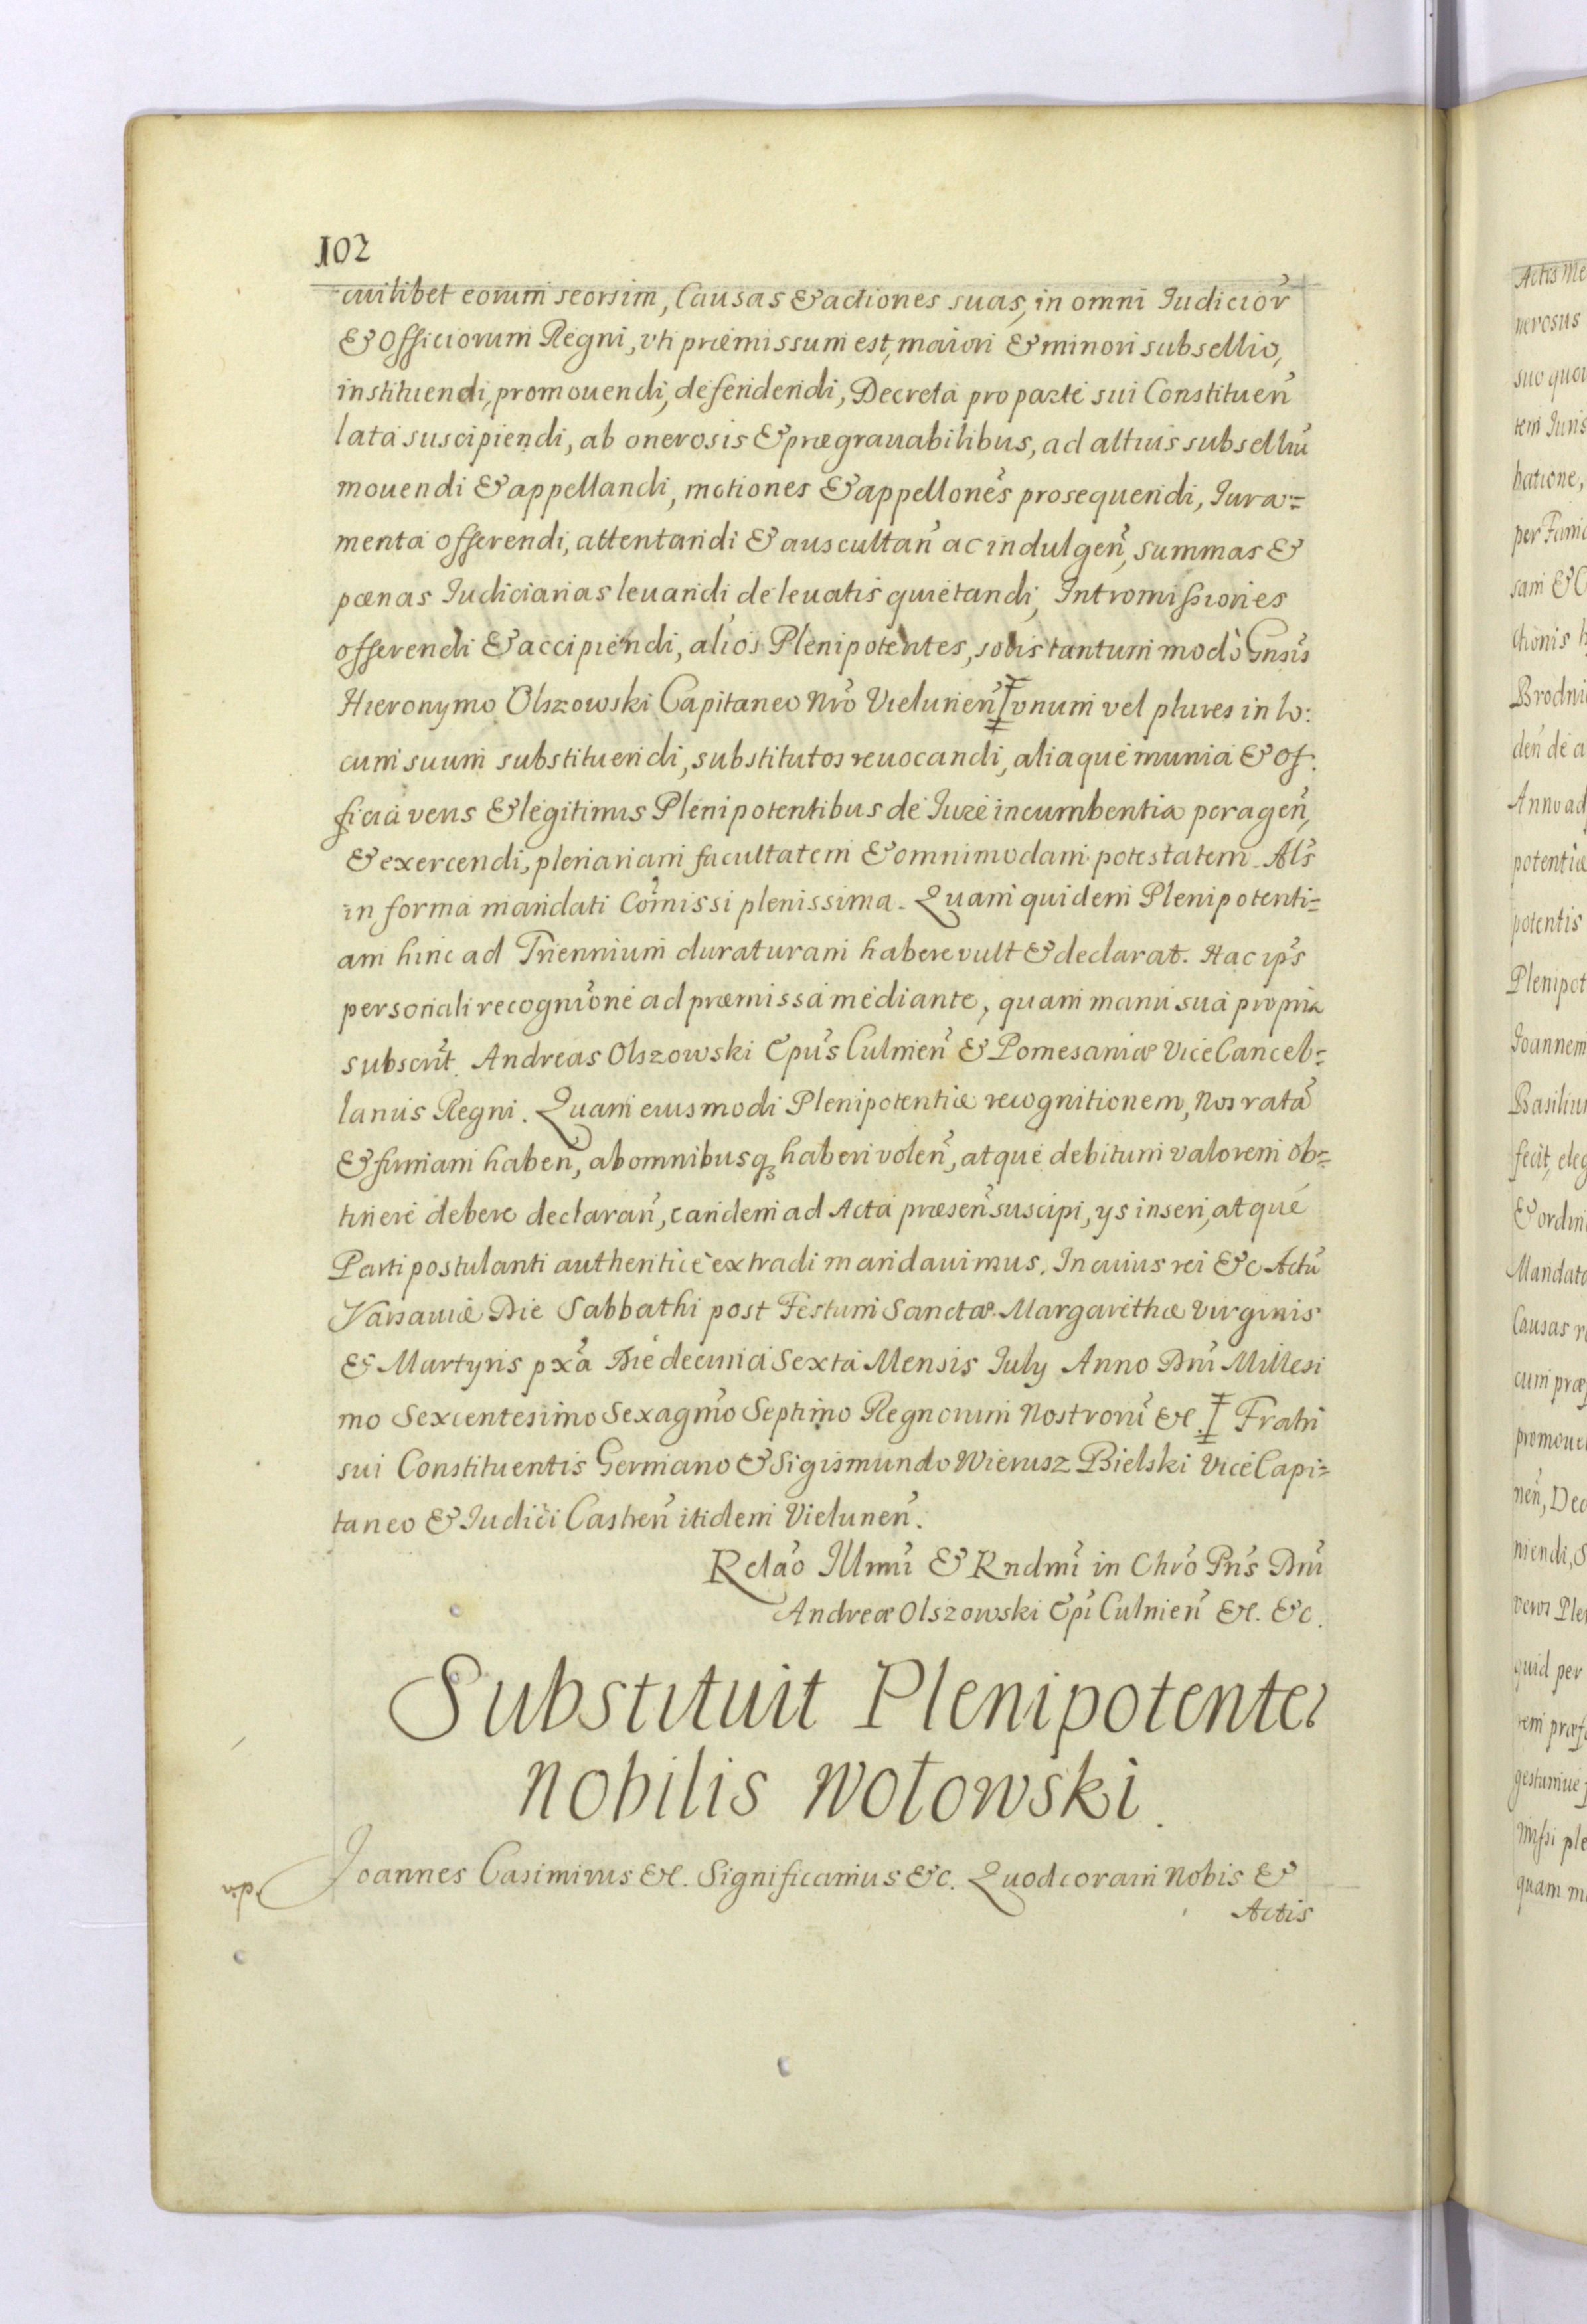 102
cuilibet eorum seorsim, Causas & actiones suas, in omni Iudicior̃
& Officiorum Regni, vti præmissum est, maiori & minori subsellio,
instituendi, promouendi, defendendi, Decreta pro parte sui Constitueñ
lata suscipiendi, ab onerosis & prægrauabilibus, ad altius subselliũ
mouendi & appellandi, motiones & appellones̃ prosequendi, Iura=
menta offerendi, attentandi & auscultañ ac indulgeñ, summas &
pœnas Iudiciarias leuandi, de leuatis quietandi, Intromissiones
offerendi & accipiendi, alios Plenipotentes, solis tantum modò Gnsis̃
Hieronymo Olszowski Capitaneo Nrõ Vielunieñ ‡ vnum vel plures in lo:
cum suum substituendi, substitutos reuocandi, aliaque munia & of:
ficia veris & legitimis Plenipotentibus de Iure incumbentia perageñ,
& exercendi, plenariam facultatem & omnimodam potestatem. Als̃
in forma mandati Com̃issi plenissima. Quam quidem Plenipotenti=
am hinc ad Triennium duraturam habere vult & declarat. Hac ips̃
personali recogniõne ad præmissa mediante, quam manu sua propria
subscrit̃. Andreas Olszowski Epũs Culmeñ & Pomesaniæ Vice Cancel=
larius Regni. Quam eiusmodi Plenipotentiæ recognitionem, Nos ratã
& firmam habeñ, ab omnibusq haberi voleñ, atque debitum valorem ob=
tinere debere declarañ, eandem ad Acta præseñ suscipi, ys inseri, atque
Parti postulanti authenticè extradi mandauimus. In cuius rei &c Actũ
Varsauiæ Die Sabbathi post Festum Sanctæ Margarethæ Virginis
& Martyris pxã Die decima Sexta Mensis July Anno Dnĩ Millesi
mo Sexcentesimo Sexagmõ Septimo Regnorum Nostrorũ &c. ‡ Fratri
sui Constituentis Germano & Sigismundo Wierusz Bielski Vice Capi=
taneo & Iudici Castreñ itidem Vieluneñ.
Relaõ Illmĩ & Rndmĩ in Chrõ Pris̃ Dnĩ
Andreæ Olszowski Epĩ Culmeñ &c. &c.
Substituit Plenipotentes
nobilis Wotowski.
Joannes Casimirus &c. Significamus &c. Quod coram Nobis &
Actis